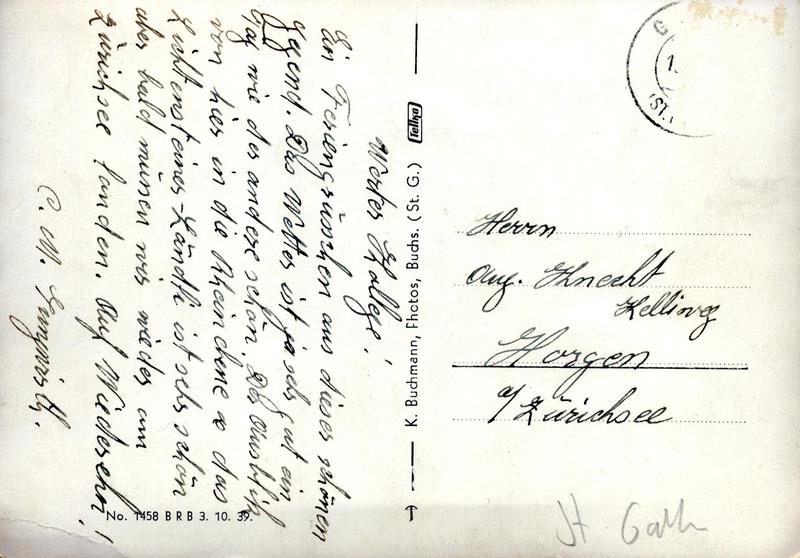 Werter Kollege!
Ein Feriengrüsschen aus dieser schönen
Gegend. Das Wetter ist ja sehr gut ein
Tag wie der andere schön. Der Ausblick
von hier in die Rheinebene & das
Lichtensteiner-Ländli ist sehr schön
aber bald müssen wir wieder am
Zürichsee landen. Auf Wiedersehn!
C. M.
K. Buchmann, Photos, Buchs. (St. G.)
Tellko
No. 1458 B R B 3. 10. 39.
Herrn
Aug. Knecht
Kelliweg
Horgen
a/Zürichsee
St Gall